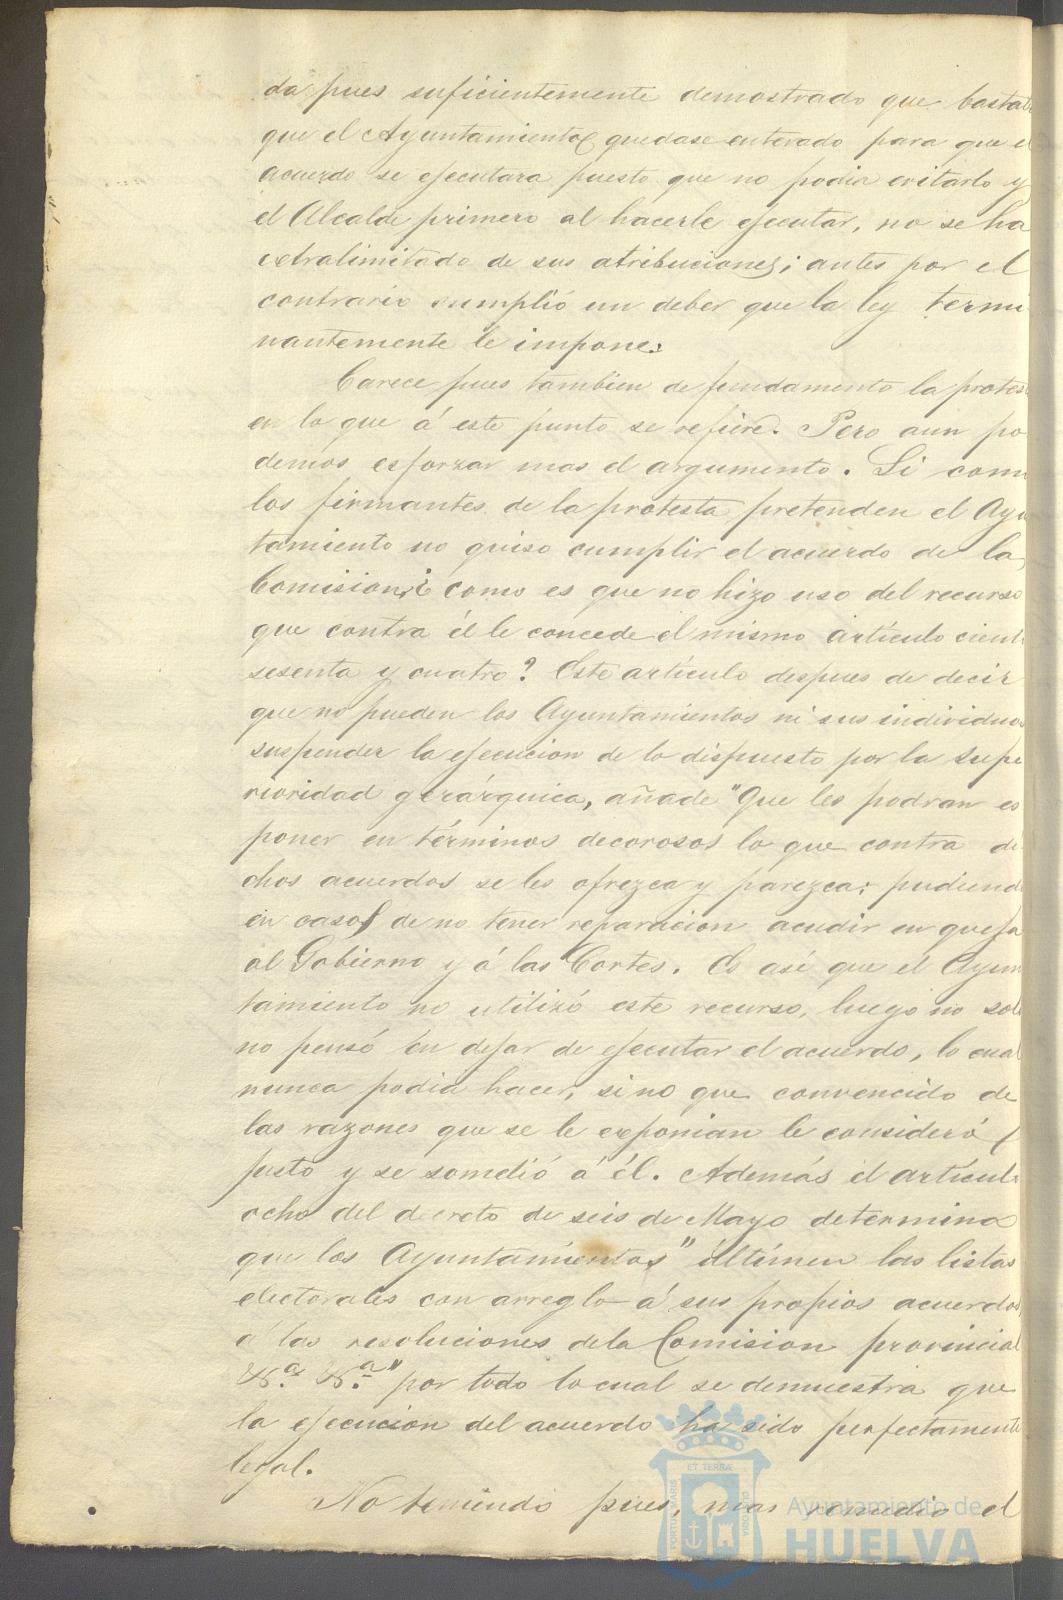 da pues suficientemente demostrado que bastab
que el Ayuntamiento quedase enterado para que e
acuerdo se ejecutara puesto que no podia evitarlo y
el Alcalde primero al hacerle ejecutar, no se ha
extralimitado de sus atribuciones; antes por el
contrario cumplió un deber que la ley termi
nantemente le impone.
Carece pues tambien de fundamento la protes
en lo que á este punto se refiere. Pero aun po
demos esforzar mas el argumento. Si como
los firmantes de la protesta pretenden el Ayu
tamiento no quiso cumplir el acuerdo de la
Comision ¿ como es que no hizo uso del recurso
que contra él le concede el mismo artículo cient
sesenta y cuatro? Este artículo despues de decir
que no pueden los Ayuntamientos ni sus individuos
suspender la ejecucion de lo dispuesto por la supe
rioridad gerárquica, añade "Que les podran es
poner en términos decorosos lo que contra di
chos acuerdos se les ofrezca y parezca; pudiend
en casos de no tener reparacion acudir en queja
al Gobierno y á las Cortes. Es así que el Ayun
tamiento no utilizó este recurso, luego no solo
no pensó en dejar de ejecutar el acuerdo, lo cual
nunca podia hacer, sino que convencido de
las razones que se le exponian le consideró
justo y se somedió á él. Además el artículo
ocho del decreto de seis de Mayo determina
que los Ayuntamientos" últimen las listas
electorales con arreglo á sus propios acuerdos,
a las resoluciones de la Comision provincial
&.ª &.ª" por todo lo cual se demuestra que
la ejecucion del acuerdo ha sido perfectamente
legal.
No teniendo pues, mas remedio el
PORTUS MARIS
ET TERRÆ
CUSTODIA
Ayuntamiento de
HUELVA